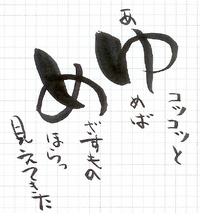 コツコツと
あゆめば
めざすもの
ほらっ
見えてきた